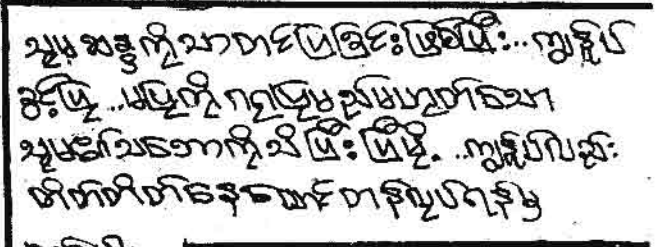 သူမဆန္ဒကိုသာတင်ပြခြင်းဖြစ်ပြီး..ကျွန်ုပ်
ခွင့်ပြု..မပြုကိုဂရုပြုမည်မဟုတ်သော
သူမ၏သဘောကိုသိပြီးပြီမို့...ကျွန်ုပ်လည်း
တိတ်တိတ်နေသောင်းတန်လုပ်ရန်မှ